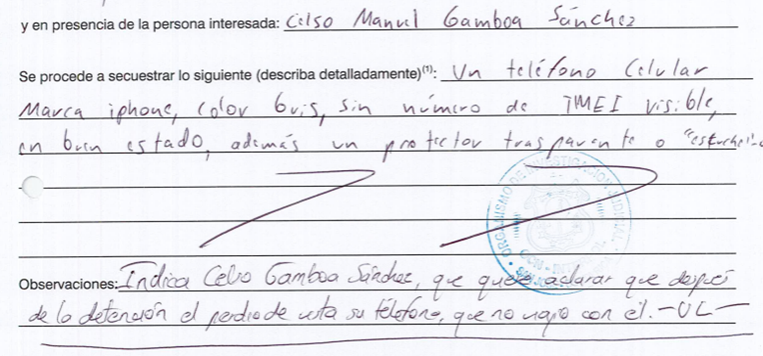 y en presencia de la persona interesada: Celso Manuel Gamboa Sánchez
Se procede a secuestrar lo siguiente (describa detalladamente)(1): Un teléfono Celular
Marca iphone, Color Gris, sin número de IMEI visible,
en buen estado, además un protector trasparente o "estuche"-
ORGANISMO DE INVESTIGACION JUDICIAL
Observaciones: Indica Celso Gamboa Sánchez, que quiere aclarar que después
de la detención el perdio de vista su teléfono, que no viajo con él. -UL-